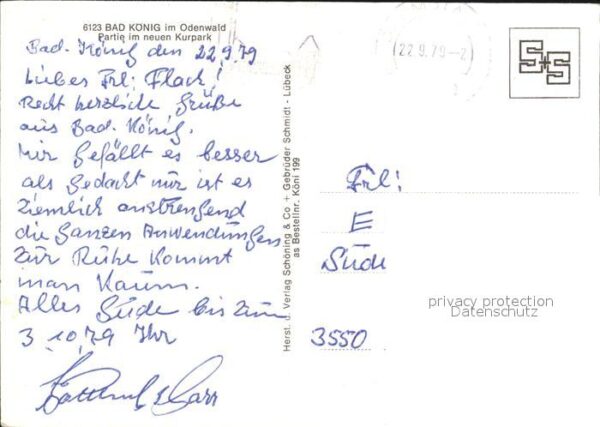 6123 BAD KÖNIG im Odenwald
Partie im neuen Kurpark
Bad. König den 22.9.79
Liebes Frl: Flack!
Recht herzliche Grüße
aus Bad. König.
Mir gefällt es besser
als gedacht nur ist es
ziemlich anstrengend
die ganzen Anwendungen
zur Ruhe kommt
man kaum.
Alles Gude bis zum
3 10.79 Ihr
Herst. u. Verlag Schöning & Co + Gebrüder Schmidt - Lübeck
as Bestellnr. Köni 199
22.9.79-2
S+S
Frl:
E
Süde
3550
privacy protection
Datenschutz